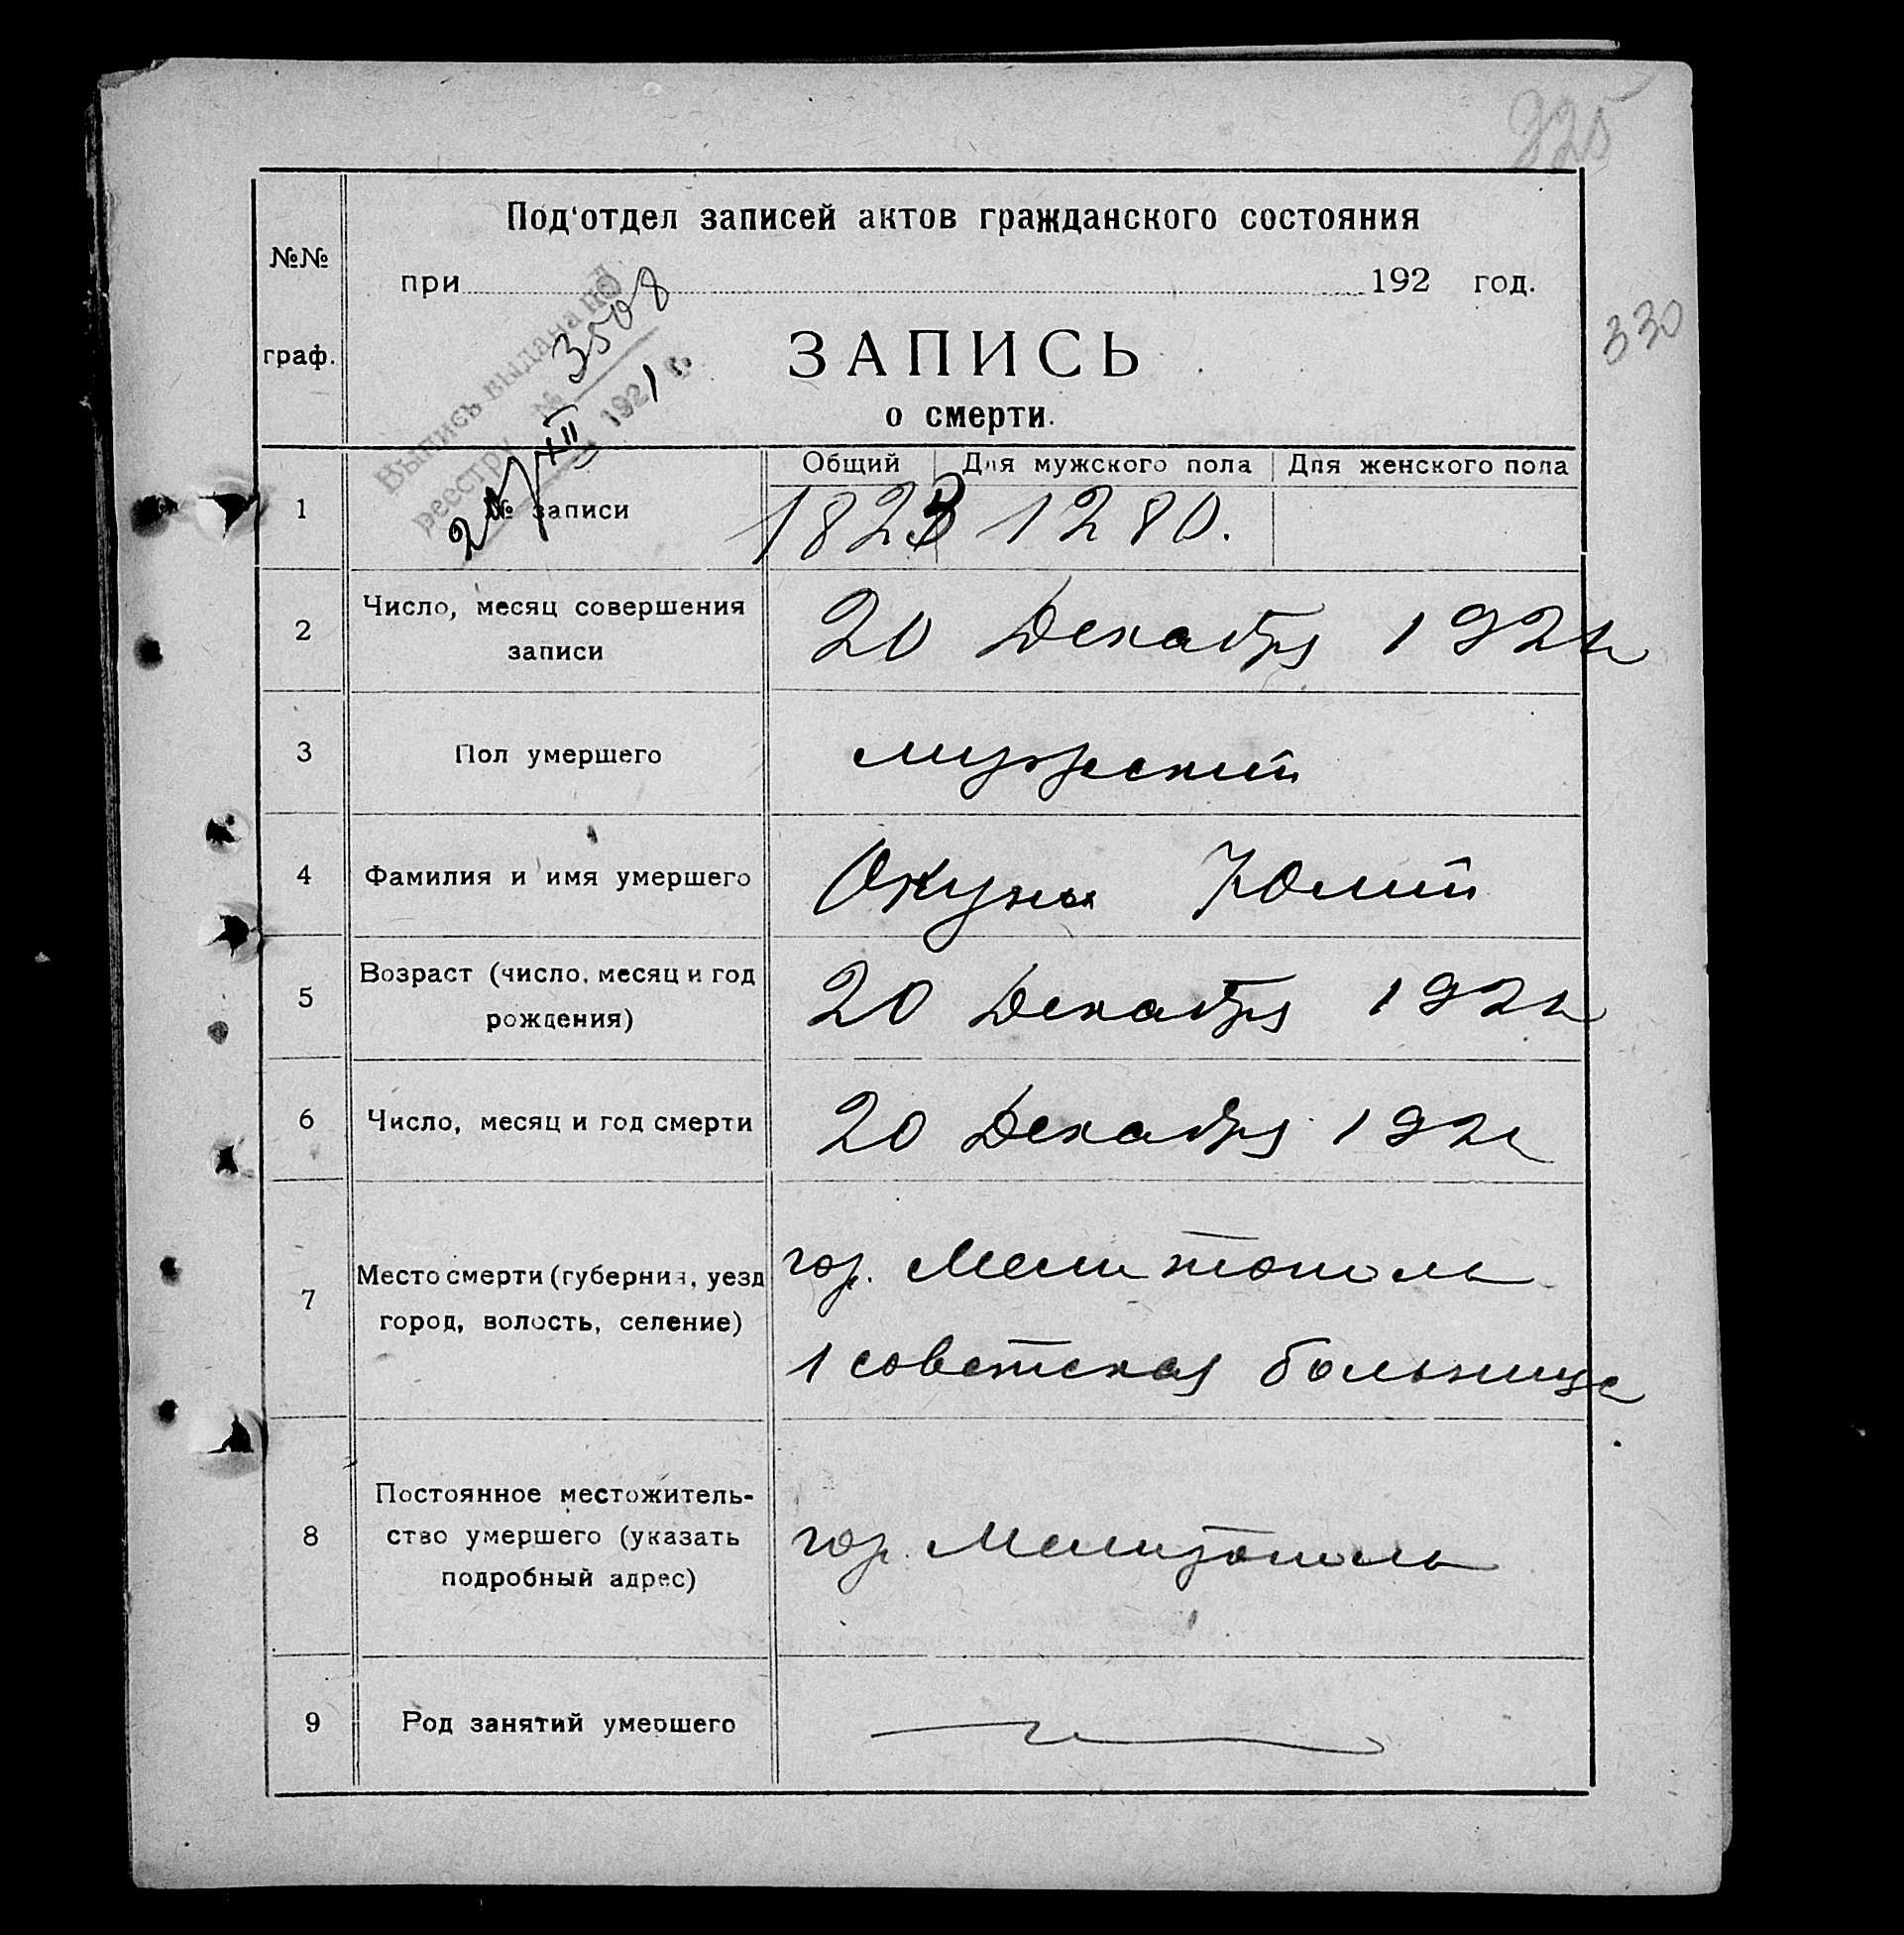 325
330
Под'отдел записей актов гражданского состояния
№№
граф.
при 192 год.
ЗАПИСЬ
о смерти.
Выпись выдана по
реестру № 3508
20/XII 1921 г.
Общий Для мужского пола Для женского пола
1 № записи 1823 1280.
2 Число, месяц совершения
записи
20 Декабря 1921
3 Пол умершего мужский
4 Фамилия и имя умершего Окунь Юлий
5 Возраст (число, месяц и год
рождения)
20 Декабря 1921
6 Число, месяц и год смерти 20 Декабря 1921
7 Место смерти (губерния, уезд
город, волость, селение)
гор. Мелитополь
1 советская больнице
8 Постоянное местожитель-
ство умершего (указать
подробный адрес)
гор. Мелитополь
9 Род занятий умершего